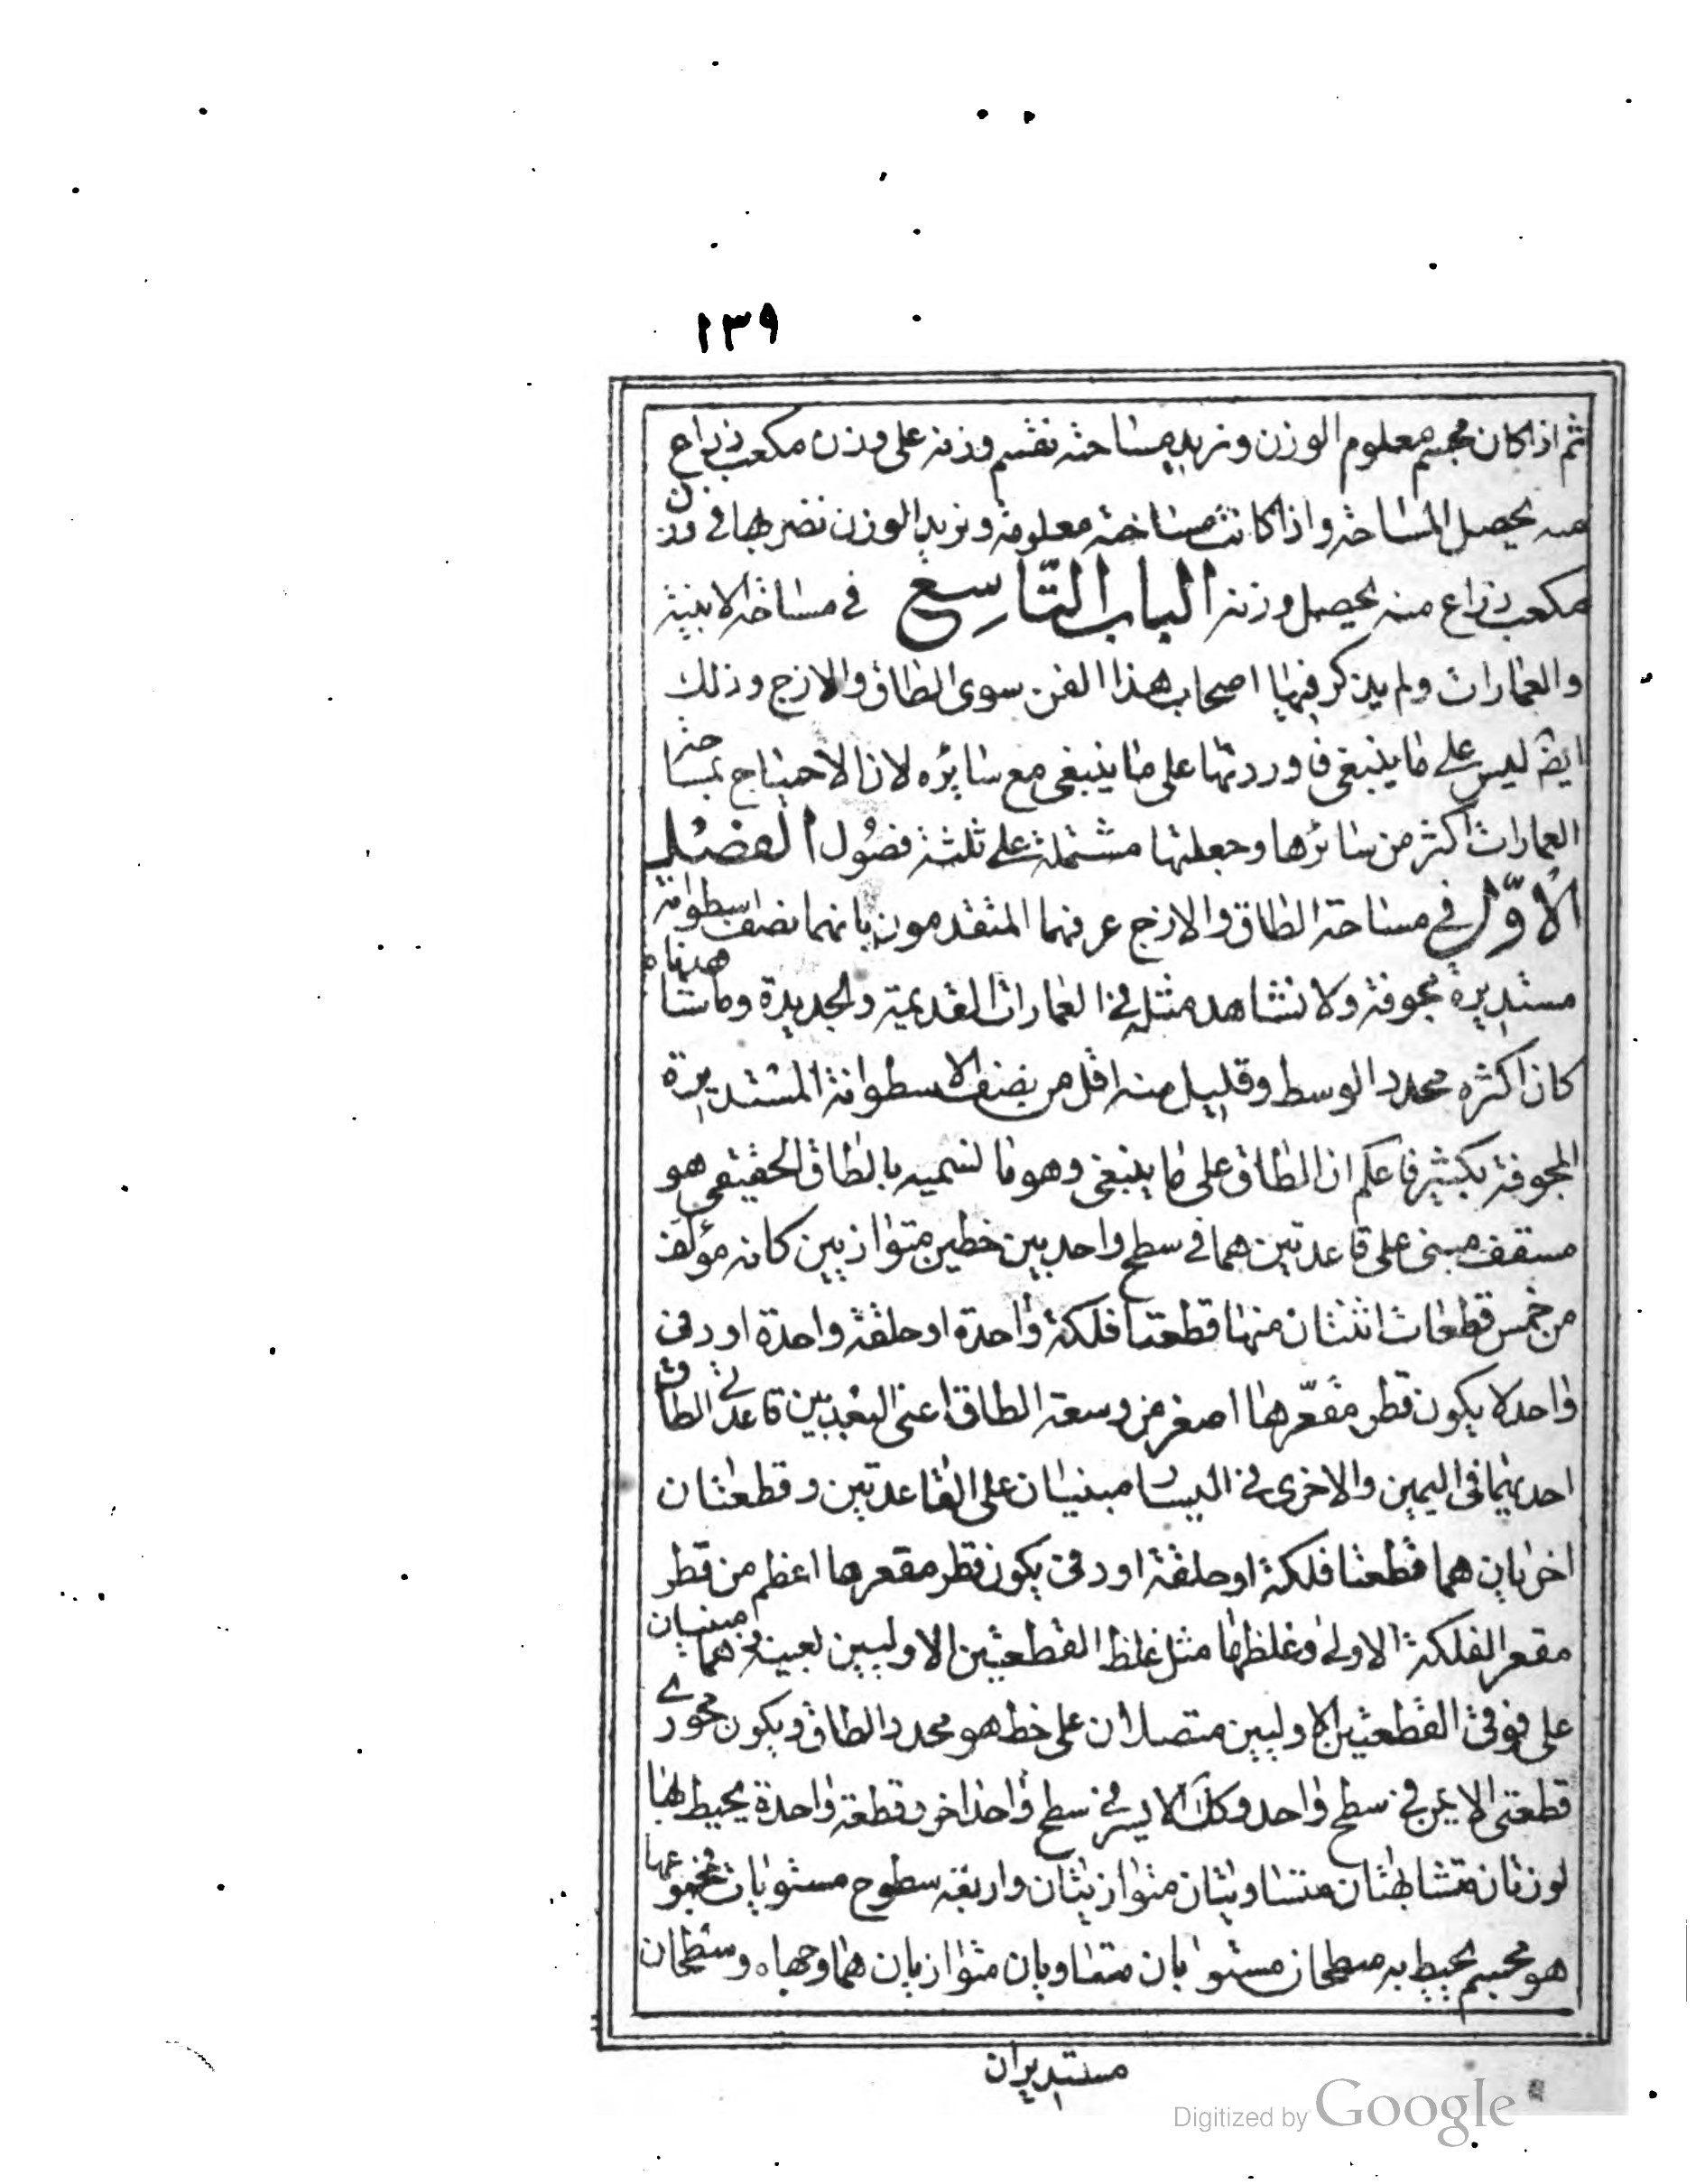 ١٣٩
ثم اذا كان مجسم معلوم الوزن ونريد مساحته نقسم وزنه على وزن مكعب ذراع
منه يحصل المساحة واذا كانت مساحته معلومة ونريد الوزن نضربها في وزن
مكعب ذراع منه يحصل وزنه الباب التاسع في مساحة الابنية
والعمارات ولم يذكر فيها اصحاب هذا الفن سوى الطاق والازج وذلك
ايضا ليس على ما ينبغي فاوردتها على ما ينبغي مع سائره لان الاحتياج بمساحة
العمارات اكثر من سائرها وجعلتها مشتملة على ثلثة فصول الفصل
الاول في مساحة الطاق والازج عرفهما المتقدمون بانهما نصف اسطوانة
مستديرة مجوفة ولا نشاهد مثله في العمارات القديمة والجديدة وما شاهدناه
كان اكثره محدد الوسط وقليل منه اقل من نصف الاسطوانة المستديرة
المجوفة بكثير فاعلم ان الطاق على ما ينبغي وهو ما نسميه بالطاق الحقيقي هو
مسقف مبنى على قاعدتين هما في سطح واحد بين خطين متوازيين كانه مؤلف
من خمس قطعات اثنتان منها قطعتا فلكة واحدة او حلقة واحدة او دف
واحد لا يكون قطر مقعرها اصغر من وسعة الطاق اعنى البعد بين قاعدتي الطاق
احديهما في اليمين والاخرى في اليسار مبنيتان على القاعدتين وقطعتان
اخريان هما قطعتا فلكة او حلقة او دف يكون قطر مقعرها اعظم من قطر
مقعر الفلكة الاولى وغلظها مثل غلظ القطعتين الاوليين بعينه هما مبنيتان
على فوق القطعتين الاوليين متصلان على خط هو محدد الطاق ويكون محورى
قطعتى الايمن في سطح واحد وكك الايسر في سطح واحد اخر وقطعة واحدة يحيط بها
لوزتان متشابهتان متساويتان متوازيتان واربعة سطوح مستويات فمجموعها
هو مجسم يحيط به سطحان مستويان متساويان متوازيان هما وجهاه وسطحان
مستديران
Digitized by Google